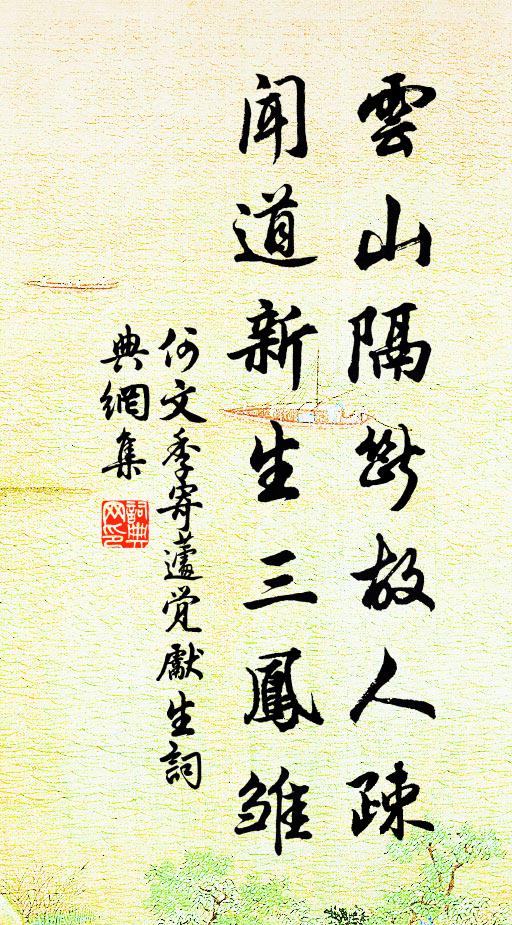 雲山隔断故人疎
聞道新生三鳳雏
何文季寄蘆覚獻生詞
典網集
詞典
网印